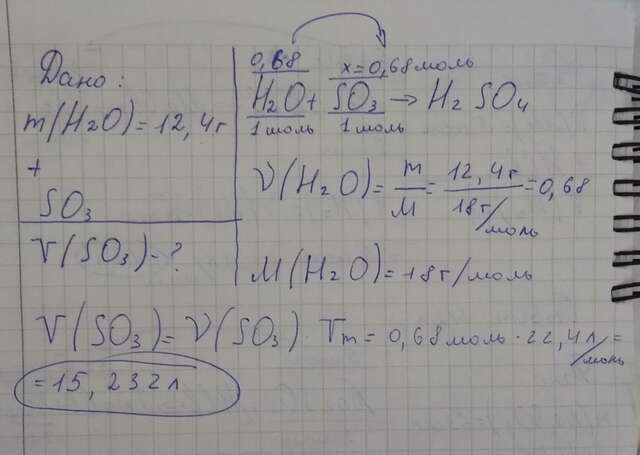 Дано:
m(H2O)=12,4г
+
SO3
V(SO3)-?
0,68 x=0,68моль
H2O+ SO3 → H2SO4
1моль 1моль
ν(H2O)= m/M = 12,4г/18г/моль =0,68
M(H2O)=18г/моль
V(SO3)=ν(SO3)·Vm=0,68моль·22,4л/моль=
=15,232л